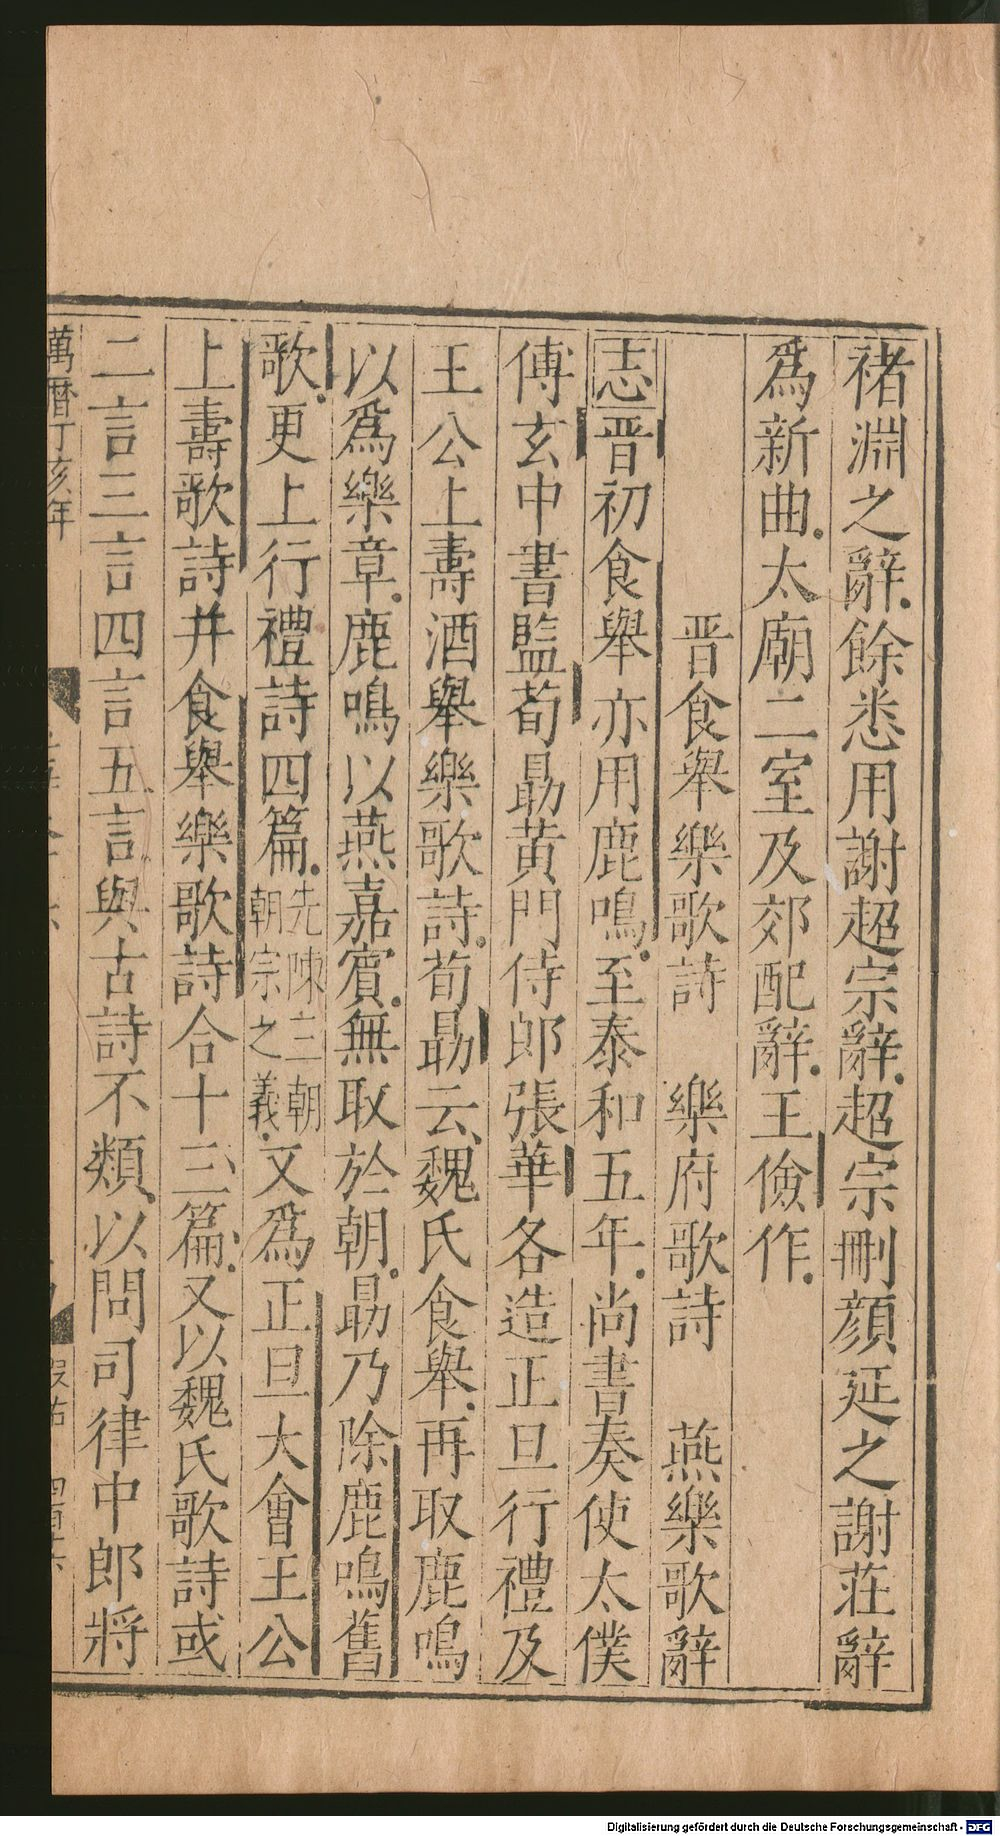 褚淵之辭餘悉用謝超宗辭超宗刪顔延之謝莊辭
爲新曲太廟二室及郊配辭王儉作
晋食舉樂歌詩　樂府歌詩　燕樂歌辭
志晋初食舉亦用鹿鳴至泰和五年尚書奏使太僕
傅玄中書監荀勗黄門侍郎張華各造正旦行禮及
王公上壽酒舉樂歌詩荀勗云魏氏食舉再取鹿鳴
以爲樂章鹿鳴以燕嘉賓無取於朝勗乃除鹿鳴舊
歌更上行禮詩四篇先陳三朝朝宗之義文爲正旦大會王公
上壽歌詩并食舉樂歌詩合十三篇又以魏氏歌詩或
二言三言四言五言與古詩不類以問司律中郎將
萬曆丁亥年
Digitalisierung gefördert durch die Deutsche Forschungsgemeinschaft - DFG